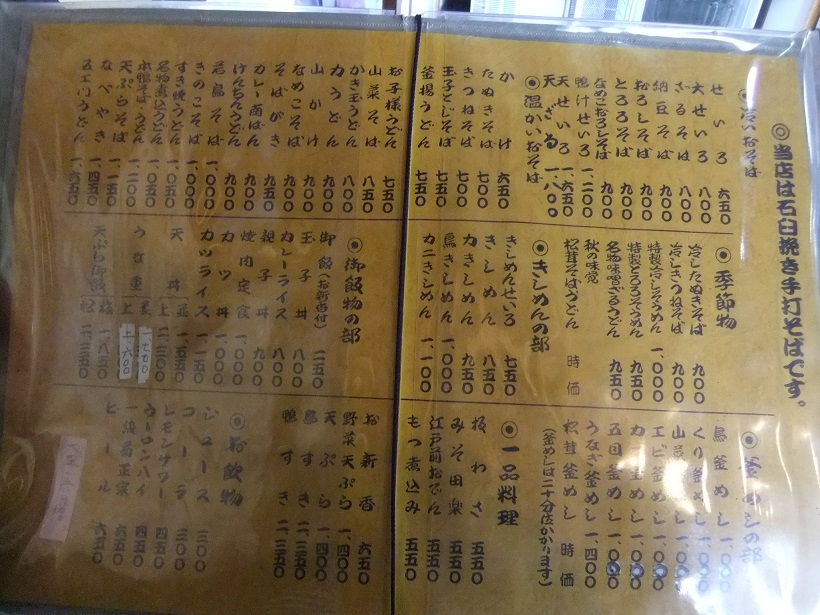 ◎当店は石臼挽き手打そばです。
◎冷いおそば
せいろ 六五〇
大せいろ 八〇〇
ざるそば 八〇〇
納豆そば 九〇〇
とろろそば 九〇〇
おろしそば 九〇〇
なめこおろしそば 九〇〇
鴨汁せいろ 一、二〇〇
天せいろ 一、六五〇
天ざる 一、八〇〇
◎温かいおそば
かけ 六五〇
たぬきそば 七〇〇
きつねそば 七〇〇
玉子とじそば 七五〇
釜揚うどん 七五〇
お子様うどん 七五〇
山菜そば 八五〇
かき玉うどん 八〇〇
力うどん 九〇〇
山かけ 九〇〇
なめこそば 九〇〇
そばがき 九五〇
カレー南ばん 九〇〇
けんちんうどん 九〇〇
若鳥そば 一、〇〇〇
きのこそば 一、〇〇〇
すき焼うどん 一、〇五〇
名物煮込うどん 一、〇五〇
本鴨そばうどん 一、二〇〇
天ぷらそば 一、一五〇
なべやき 一、四五〇
五エ門うどん 一、六五〇
◎季節物
冷したぬきそば 九〇〇
冷しきつねそば 九〇〇
特製冷しそうめん 一、〇〇〇
特製とろろそうめん 九五〇
名物味噌だるうどん 九五〇
秋の味覚
松茸そばうどん 時価
◎きしめんの部
きしめんせいろ 七五〇
きしめん 八五〇
かきしめん 九五〇
鳥きしめん 一、〇〇〇
カニきしめん 一、一〇〇
◎御飯物の部
御飯(お新香付) 二五〇
玉子丼 八〇〇
カレーライス 八〇〇
親子丼 九〇〇
焼肉定食 一、〇〇〇
カツ丼 一、〇〇〇
カツライス 一、一五〇
天丼 並 一、五五〇
上 二、三〇〇
うな重 並 一、七〇〇
上
天ぷら御飯 梅 一、八五〇
松 二、三五〇
◎釜めしの部
鳥釜めし 一、〇〇〇
くり釜めし 一、〇〇〇
山菜釜めし
エビ釜めし 一、〇〇〇
カニ釜めし 一、〇〇〇
五目釜めし 一、〇〇〇
うなぎ釜めし 一、四〇〇
松茸釜めし 時価
(釜めしは二十分位かかります)
◎一品料理
板わさ 五五〇
みそ田楽 五五〇
江戸前おでん 五五〇
もつ煮込み 五五〇
お新香 六五〇
野菜天ぷら 一、四〇〇
天ぷら 一、四〇〇
鳥すき 二、二五〇
鴨すき 二、三五〇
◎お飲物
ジュース 三〇〇
コーラ 三〇〇
レモンサワー 四五〇
ウーロンハイ 四五〇
一級菊正宗 六五〇
ビール 六五〇